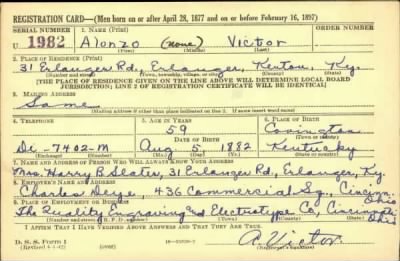 REGISTRATION CARD—(Men born on or after April 28, 1877 and on or before February 16, 1897)
SERIAL NUMBER 1. NAME (Print) ORDER NUMBER
U 1982 Alonzo (none) Victor
(First) (Middle) (Last)
2. PLACE OF RESIDENCE (Print)
31 Erlanger Rd., Erlanger, Kenton, Ky.
(Number and street) (Town, township, village, or city) (County) (State)
[THE PLACE OF RESIDENCE GIVEN ON THE LINE ABOVE WILL DETERMINE LOCAL BOARD
JURISDICTION; LINE 2 OF REGISTRATION CERTIFICATE WILL BE IDENTICAL]
3. MAILING ADDRESS
Same
(Mailing address if other than place indicated on line 2. If same insert word same)
4. TELEPHONE 5. AGE IN YEARS 6. PLACE OF BIRTH
59 Covington
DATE OF BIRTH (Town or county)
Di-7402-M Aug 5, 1882 Kentucky
(Exchange) (Number) (Mo.) (Day) (Yr.) (State or country)
7. NAME AND ADDRESS OF PERSON WHO WILL ALWAYS KNOW YOUR ADDRESS
Mrs. Harry B Slater, 31 Erlanger Rd, Erlanger, Ky.
8. EMPLOYER'S NAME AND ADDRESS
Charles 436 Commercial Sq., Cincinn. Ohio
9. PLACE OF EMPLOYMENT OR BUSINESS
The Quality Engraving and Electrotype Co, Cincinnati Ohio
(Number and street or R. F. D. number) (Town) (County) (State)
I AFFIRM THAT I HAVE VERIFIED ABOVE ANSWERS AND THAT THEY ARE TRUE.
D. S. S. Form 1
(Revised 4-1-42) (over) A. Victor
(Registrant's signature)